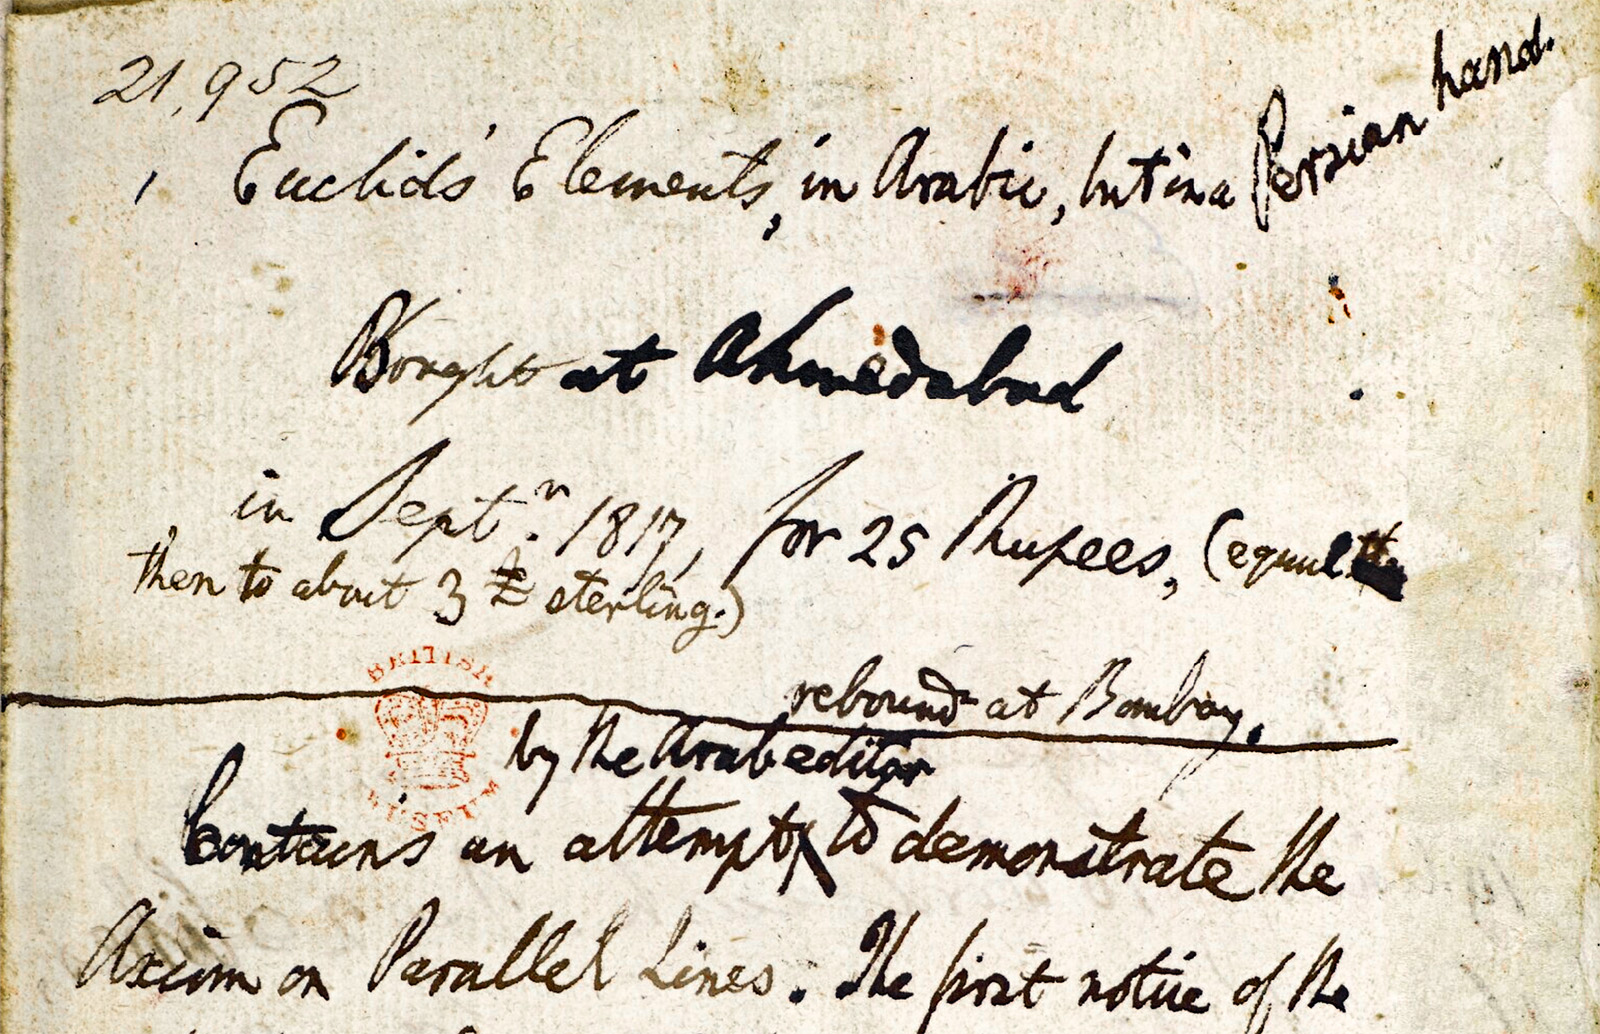 21,952
Euclid's Elements, in Arabic, but in a Persian hand.
Bought at Ahmedabad
in Septr. 1817, for 25 Rupees, (equal
then to about 3 £ sterling.)
BRITISH
rebound at Bombay.
by the Arab editor
Contains an attempt to demonstrate the
Axiom on Parallel Lines. The first notice of the